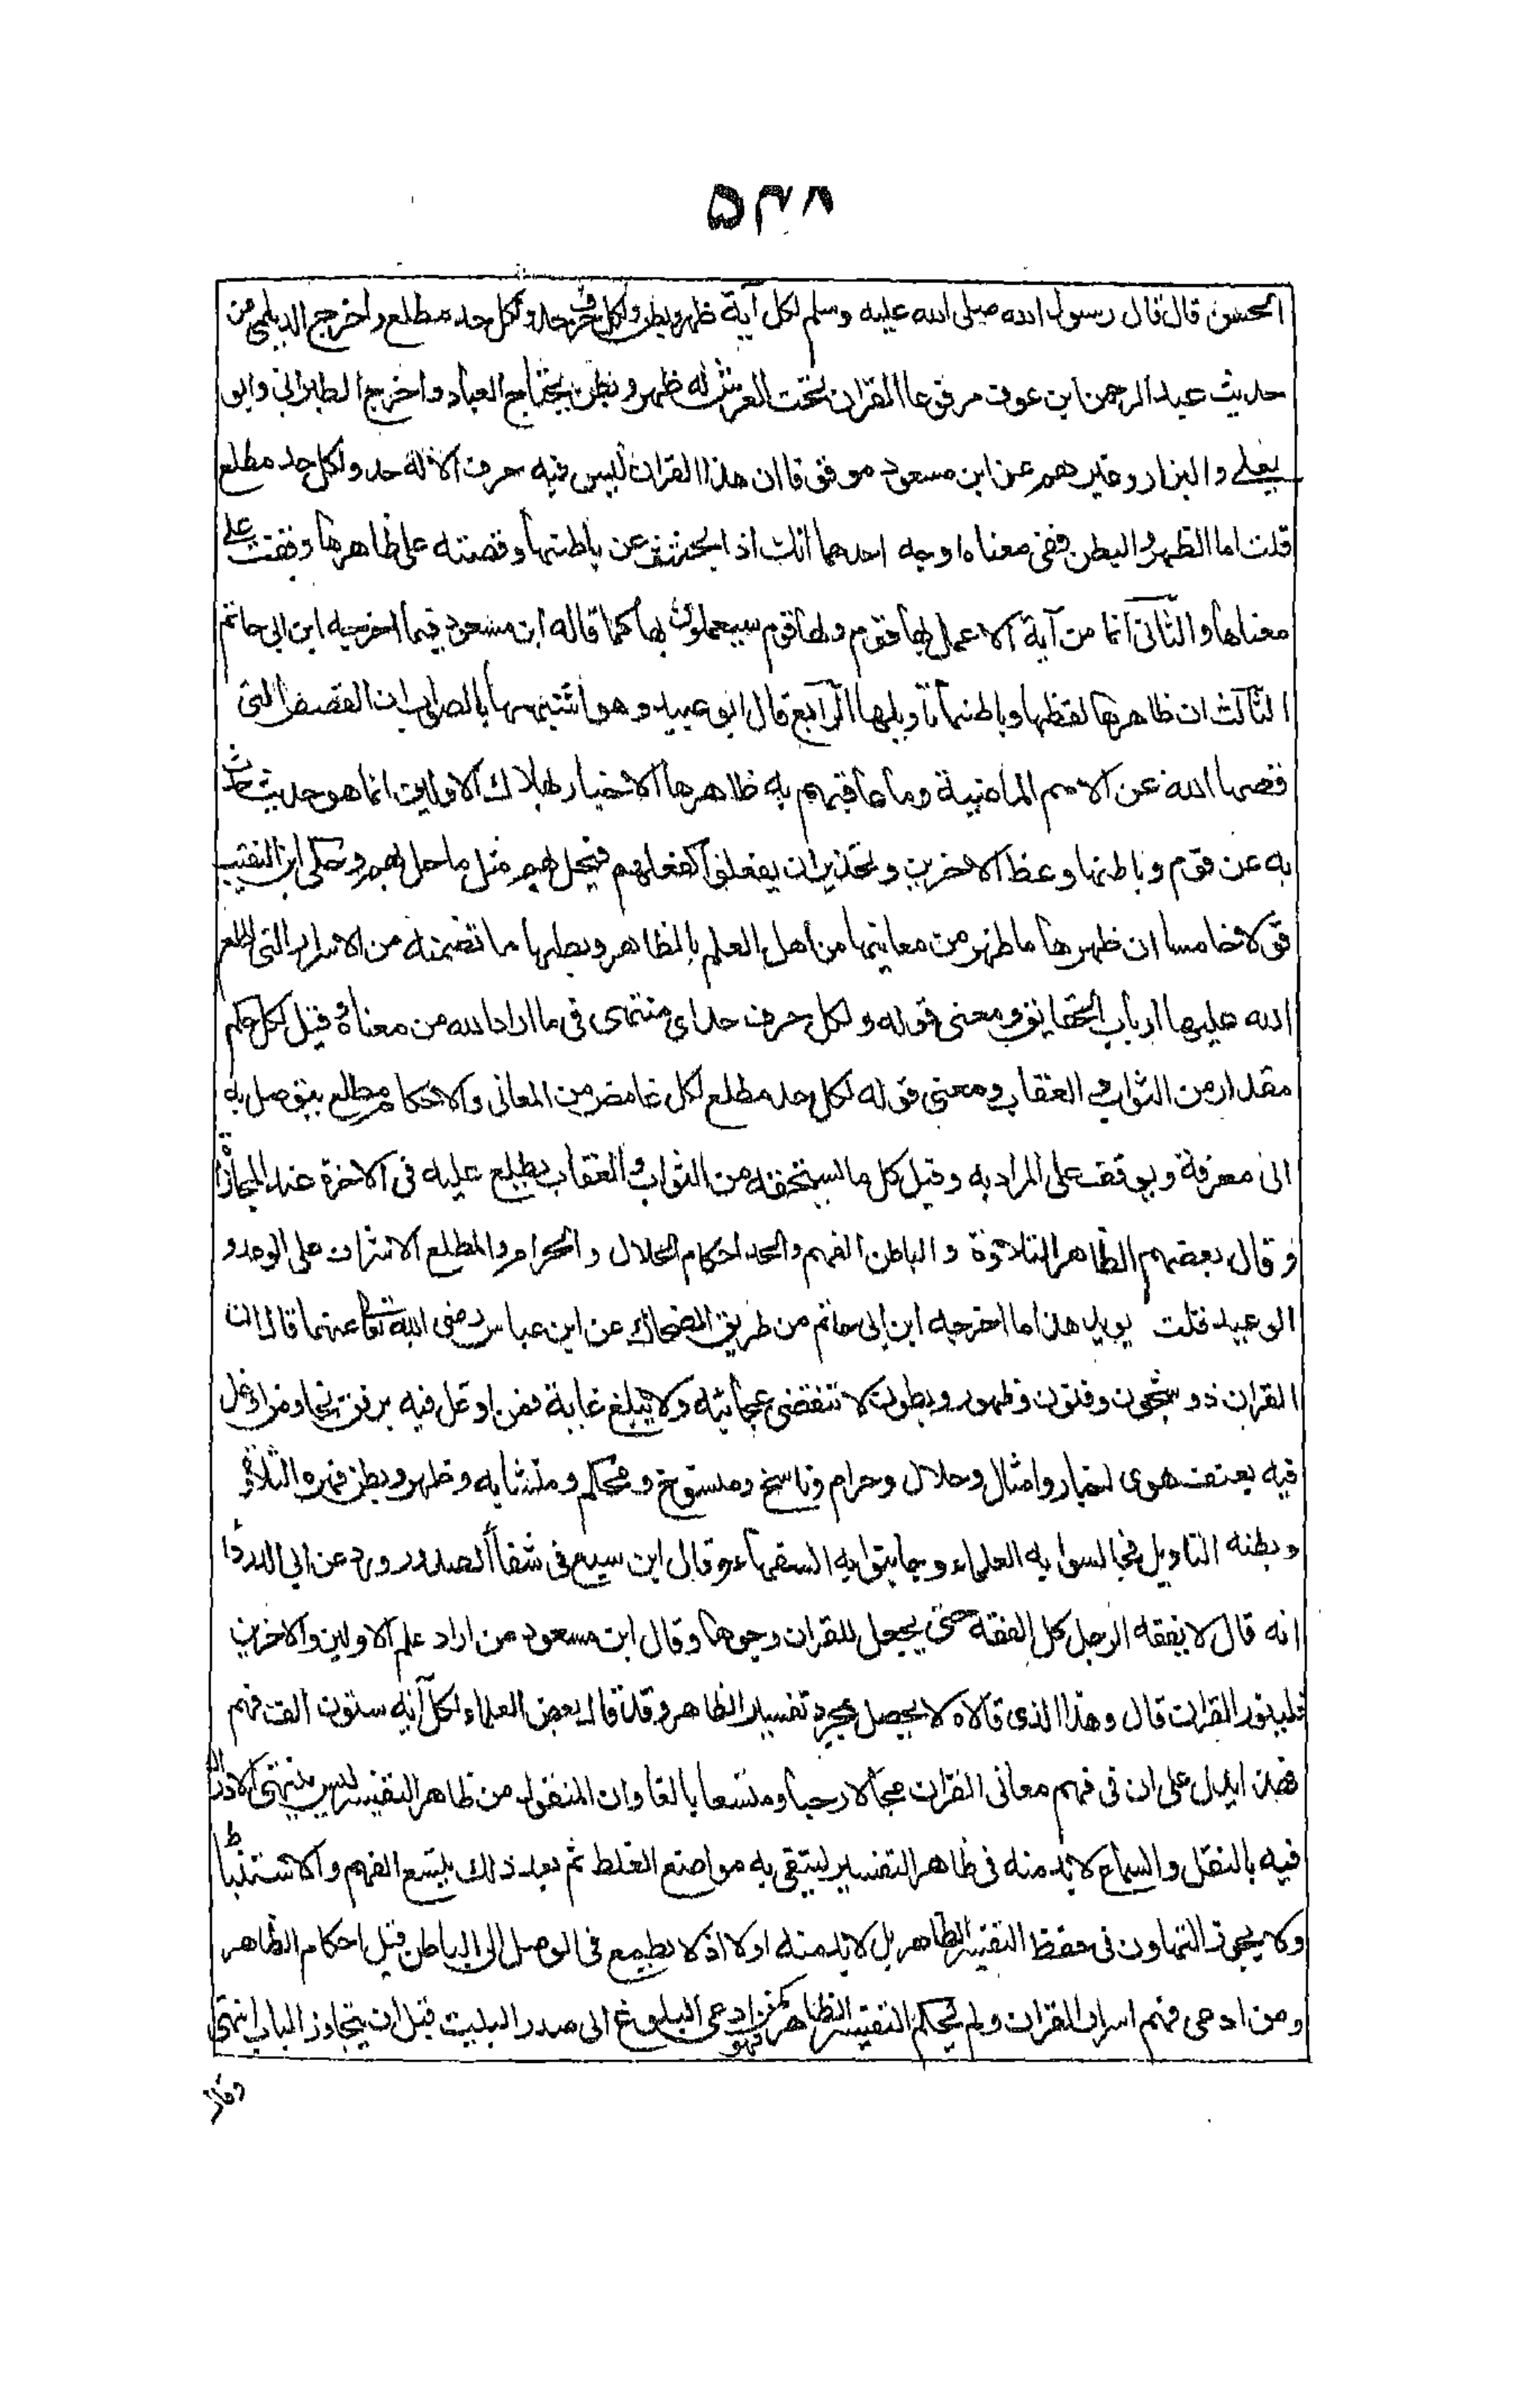 ۵۳۸
الحسن قال قال رسول الله صلى الله عليه وسلم لكل آية ظهر وبطن ولكل حرف حد ولكل حد مطلع واخرج الديلمى من
حديث عبد الرحمن ابن عوف مرفوعا القران تحت العرش له ظهر وبطن يحتاج العباد واخرج الطبرانى وابو
يعلى والبزار وغيرهم عن ابن مسعود موقوفا ان هذا القران ليس فيه حرف الا له حد ولكل حد مطلع
قلت اما الظهر والبطن ففى معناه اوجه احدهما انك اذا بحثت عن باطنها وقصته على ظاهرها وقفت على
معناها والثانى انما من آية الا عمل بها قوم ولها قوم سيعملون بها كما قاله ابن مسعود فيما اخرجه ابن ابى حاتم
الثالث ان ظاهرها لفظها وباطنها تاويلها الرابع قال ابو عبيد وهو اشبهها بالصواب ان القصص التى
قصها الله عن الامم الماضية وما عاقبهم به ظاهرها الاخبار بهلاك الاولين انما هو حديث حدث
به عن قوم وباطنها وعظ الاخرين وتحذير ان يفعلوا كفعلهم فيحل بهم مثل ما حل بهم وحكى ابن النقيب
قولا خامسا ان ظهرها ما ظهر من معانيها من اهل العلم بالظاهر وبطنها ما تضمنه من الاسرار التى اطلع
الله عليها ارباب الحقايق ومعنى قوله ولكل حرف حد اى منتهى فى ما اراد الله من معناه وقيل لكل حكم
مقدار من الثواب والعقاب ومعنى قوله لكل حد مطلع لكل غامض من المعانى والاحكام مطلع يتوصل به
الى معرفة ويوقف على المراد به وقيل كل ما يستحقه من الثواب والعقاب يطلع عليه فى الاخرة عند المجازاة
وقال بعضهم الظاهر التلاوة والباطن الفهم والحد احكام الحلال والحرام والمطلع الاشراف على الوعد و
الوعيد قلت يويد هذا ما اخرجه ابن ابى حاتم من طريق الضحاك عن ابن عباس رضى الله تعا عنهما قال ان
القران ذو شجون وفنون وظهور وبطون لا تنقضى عجائبه ولا يبلغ غاية فمن اوغل فيه برفق نجا ومن اوغل
فيه بعنف هوى اخبار وامثال وحلال وحرام وناسخ ومنسوخ ومحكم ومتشابه وظهر وبطن فظهره التلاوة
وبطنه التاويل فجالسوا به العلماء وجانبوا به السفهاء وقال ابن سبع فى شفاء الصدور ورد عن ابى الدرداء
انه قال لا يفقه الرجل كل الفقه حتى يجعل للقران وجوها وقال ابن مسعود من اراد علم الاولين والاخرين
فليثور القران قال وهذا الذى قالاه لا يحصل بمجرد تفسير الظاهر وقد قال بعض العلماء لكل آية ستون الف فهم
فهذا يدل على ان فى فهم معانى القران مجالا رحبا ومتسعا بالغا وان المنقول من ظاهر التفسير ليس ينتهى الادراك
فيه بالنقل والسماع لا بد منه فى ظاهر التفسير ليتقى به مواضع الغلط ثم بعد ذلك يتسع الفهم والاستنباط
ولا يجوز التهاون فى حفظ التفسير الظاهر بل لا بد منه اولا اذ لا يطمع فى الوصل الى الباطن قبل احكام الظاهر
ومن ادعى فهم اسرار القران ولم يحكم التفسير الظاهر فهو كمن ادعى البلوغ الى صدر البيت قبل ان يتجاوز الباب انتهى
وقال